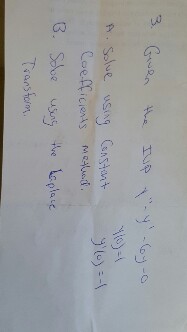 3. Given the IVP y'' - y' - 6y = 0
y(0) = 1
y'(0) = -1
A. Solve using Constant
Coefficients method.
B. Solve using the Laplace
Transform.